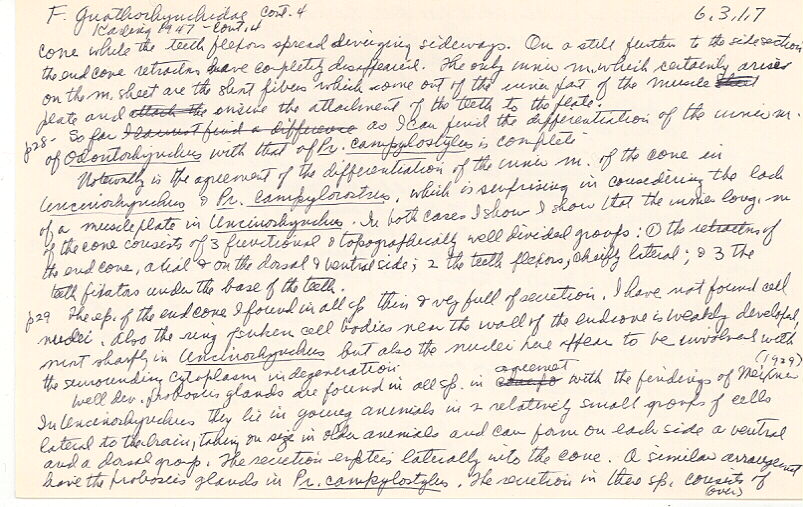 F. Gnathorhynchidae cont. 4 6.3.17
Karling 1947 - cont. 4
cone while the teeth flexors spread diverging sideways. On a still further to the side section
the end cone retractors have completely disappeared. The only inner m. which certainly arises
on the m. sheet are the short fibers which come out of the inner part of the muscle that
plate and attach the ensure the attachment of the teeth to the plate.
p28- So far I cannot find a difference as I can find the differentiation of the inner m.
of Odontorhynchus with that of Pr. campylostylus is complete
Naturally is the agreement of the differentiation of the inner m. of the cone in
Uncinorhynchus & Pr. campylostylus, which is surprising in considering the lack
of a muscle plate in Uncinorhynchus. In both cases I show I show that the inner long. m
of the cone consists of 3 functional & topographically well divided groups: ① the retractors of
the end cone, axial & on the dorsal & ventral side; 2 the teeth flexors, chiefly lateral; & 3 the
teeth fixators under the base of the teeth.
p29 The ep. of the end cone I found in all sp. thin & very full of secretion. I have not found cell
nuclei. Also the ring of sunken cell bodies near the wall of the endcone is weakly developed,
most sharply in Uncinorhynchus but also the nuclei here appear to be involved with
the surrounding cytoplasm in degeneration (1929)
well dev. proboscis glands are found in all sp. in agreemet with the findings of Meixner
In Uncinorhynchus they lie in young animals in 2 relatively small groups of cells
lateral to the brain, taking on size in older animals and can form on each side a ventral
and a dorsal group. The secretion empties laterally into the cone. A similar arrangemt
have the proboscis glands in Pr. campylostylus. The secretion in these sp. consists of
(over)